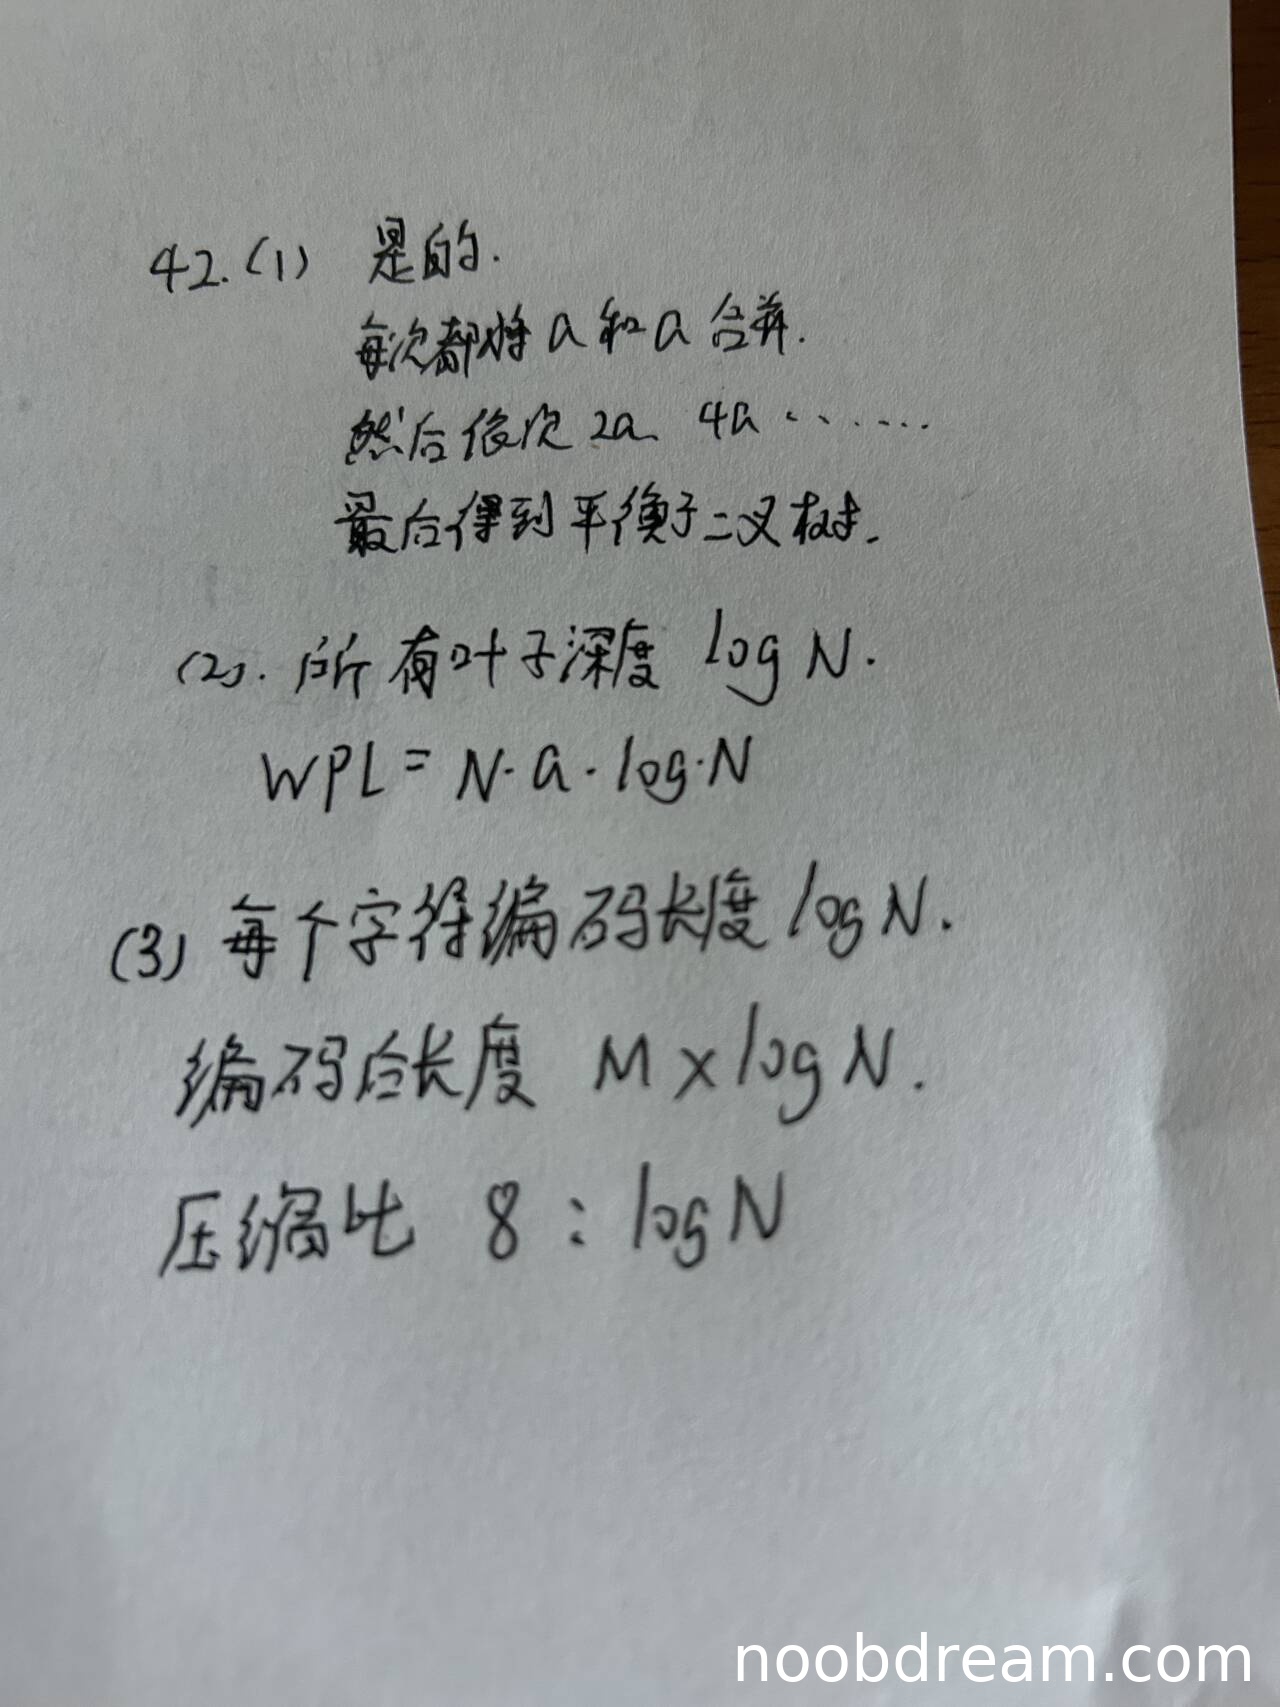 42.(1) 是的.
每次都将a和a合并.
然后依次2a、4a......
最后得到平衡二叉树.
(2). 所有叶子深度 log N.
WPL = N·a·log·N
(3) 每个字符编码长度 log N.
编码后长度 M × log N.
压缩比 8 : log N
noobdream.com